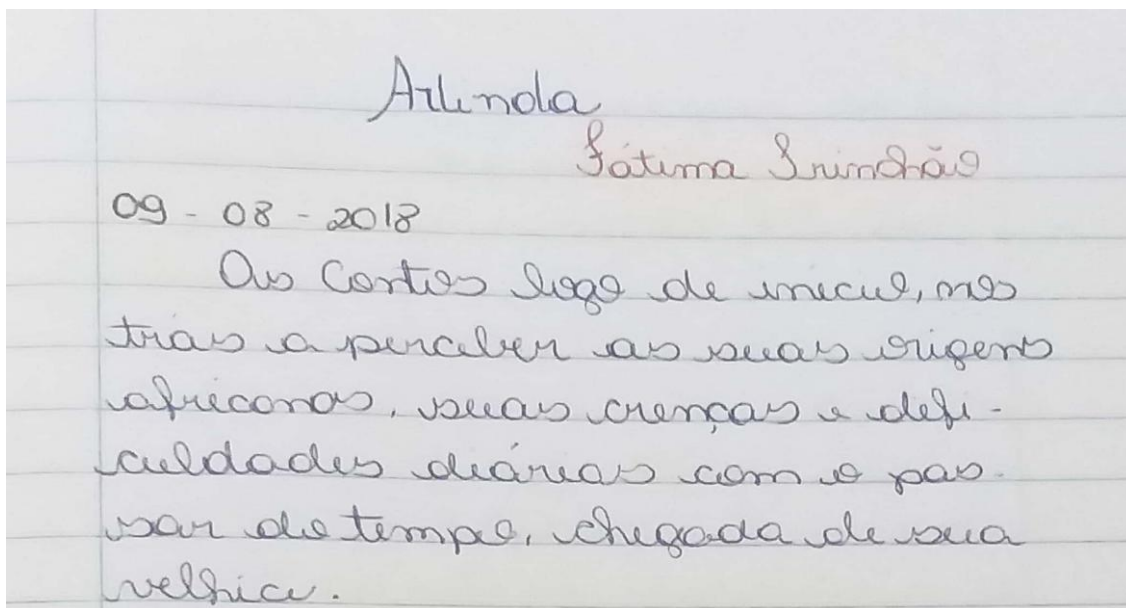 Arlinda
Fátima Trinchão
09 - 08 - 2018
Os Contos logo de inicio, nos
trás a perceber as suas origens
africanas, suas crenças e defi-
culdades diárias com o pas-
sar do tempo, chegada de sua
velhice.